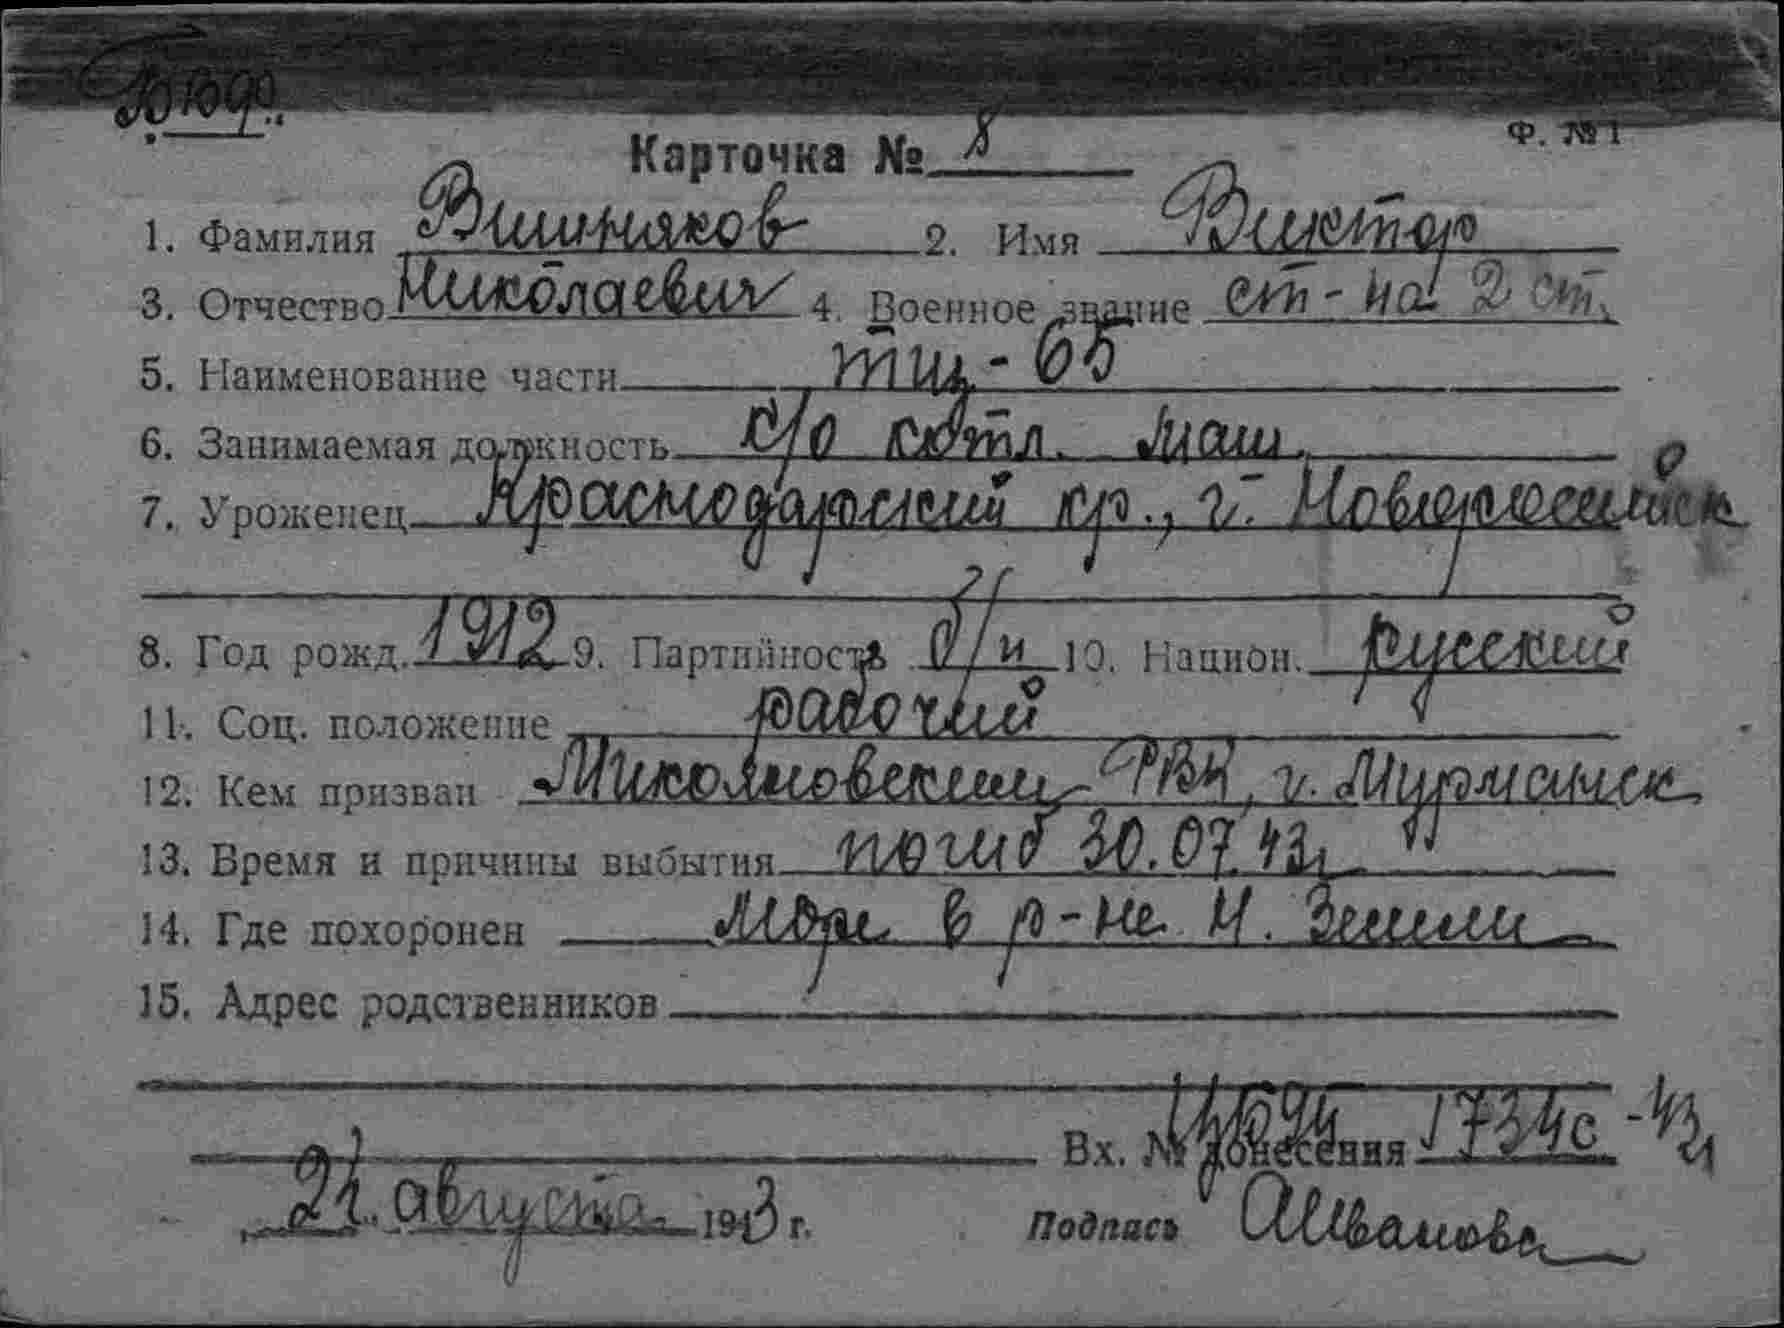 Ф. №1
Карточка № 8
1. Фамилия Вишняков 2. Имя Виктор
3. Отчество Николаевич 4. Военное звание ст-на 2 ст.
5. Наименование части тщ-65
6. Занимаемая должность к/о котл. маш.
7. Уроженец Краснодарский кр., г. Новороссийск
8. Год рожд. 1912 9. Партийность б/п 10. Национ. русский
11. Соц. положение рабочий
12. Кем призван Микояновским РВК, г. Мурманск
13. Время и причины выбытия погиб 30.07.43г
14. Где похоронен море в р-не Н. Земли
15. Адрес родственников
Вх. № донесения 1734с -43г
24 августа 1943 г. Подпись АИванова